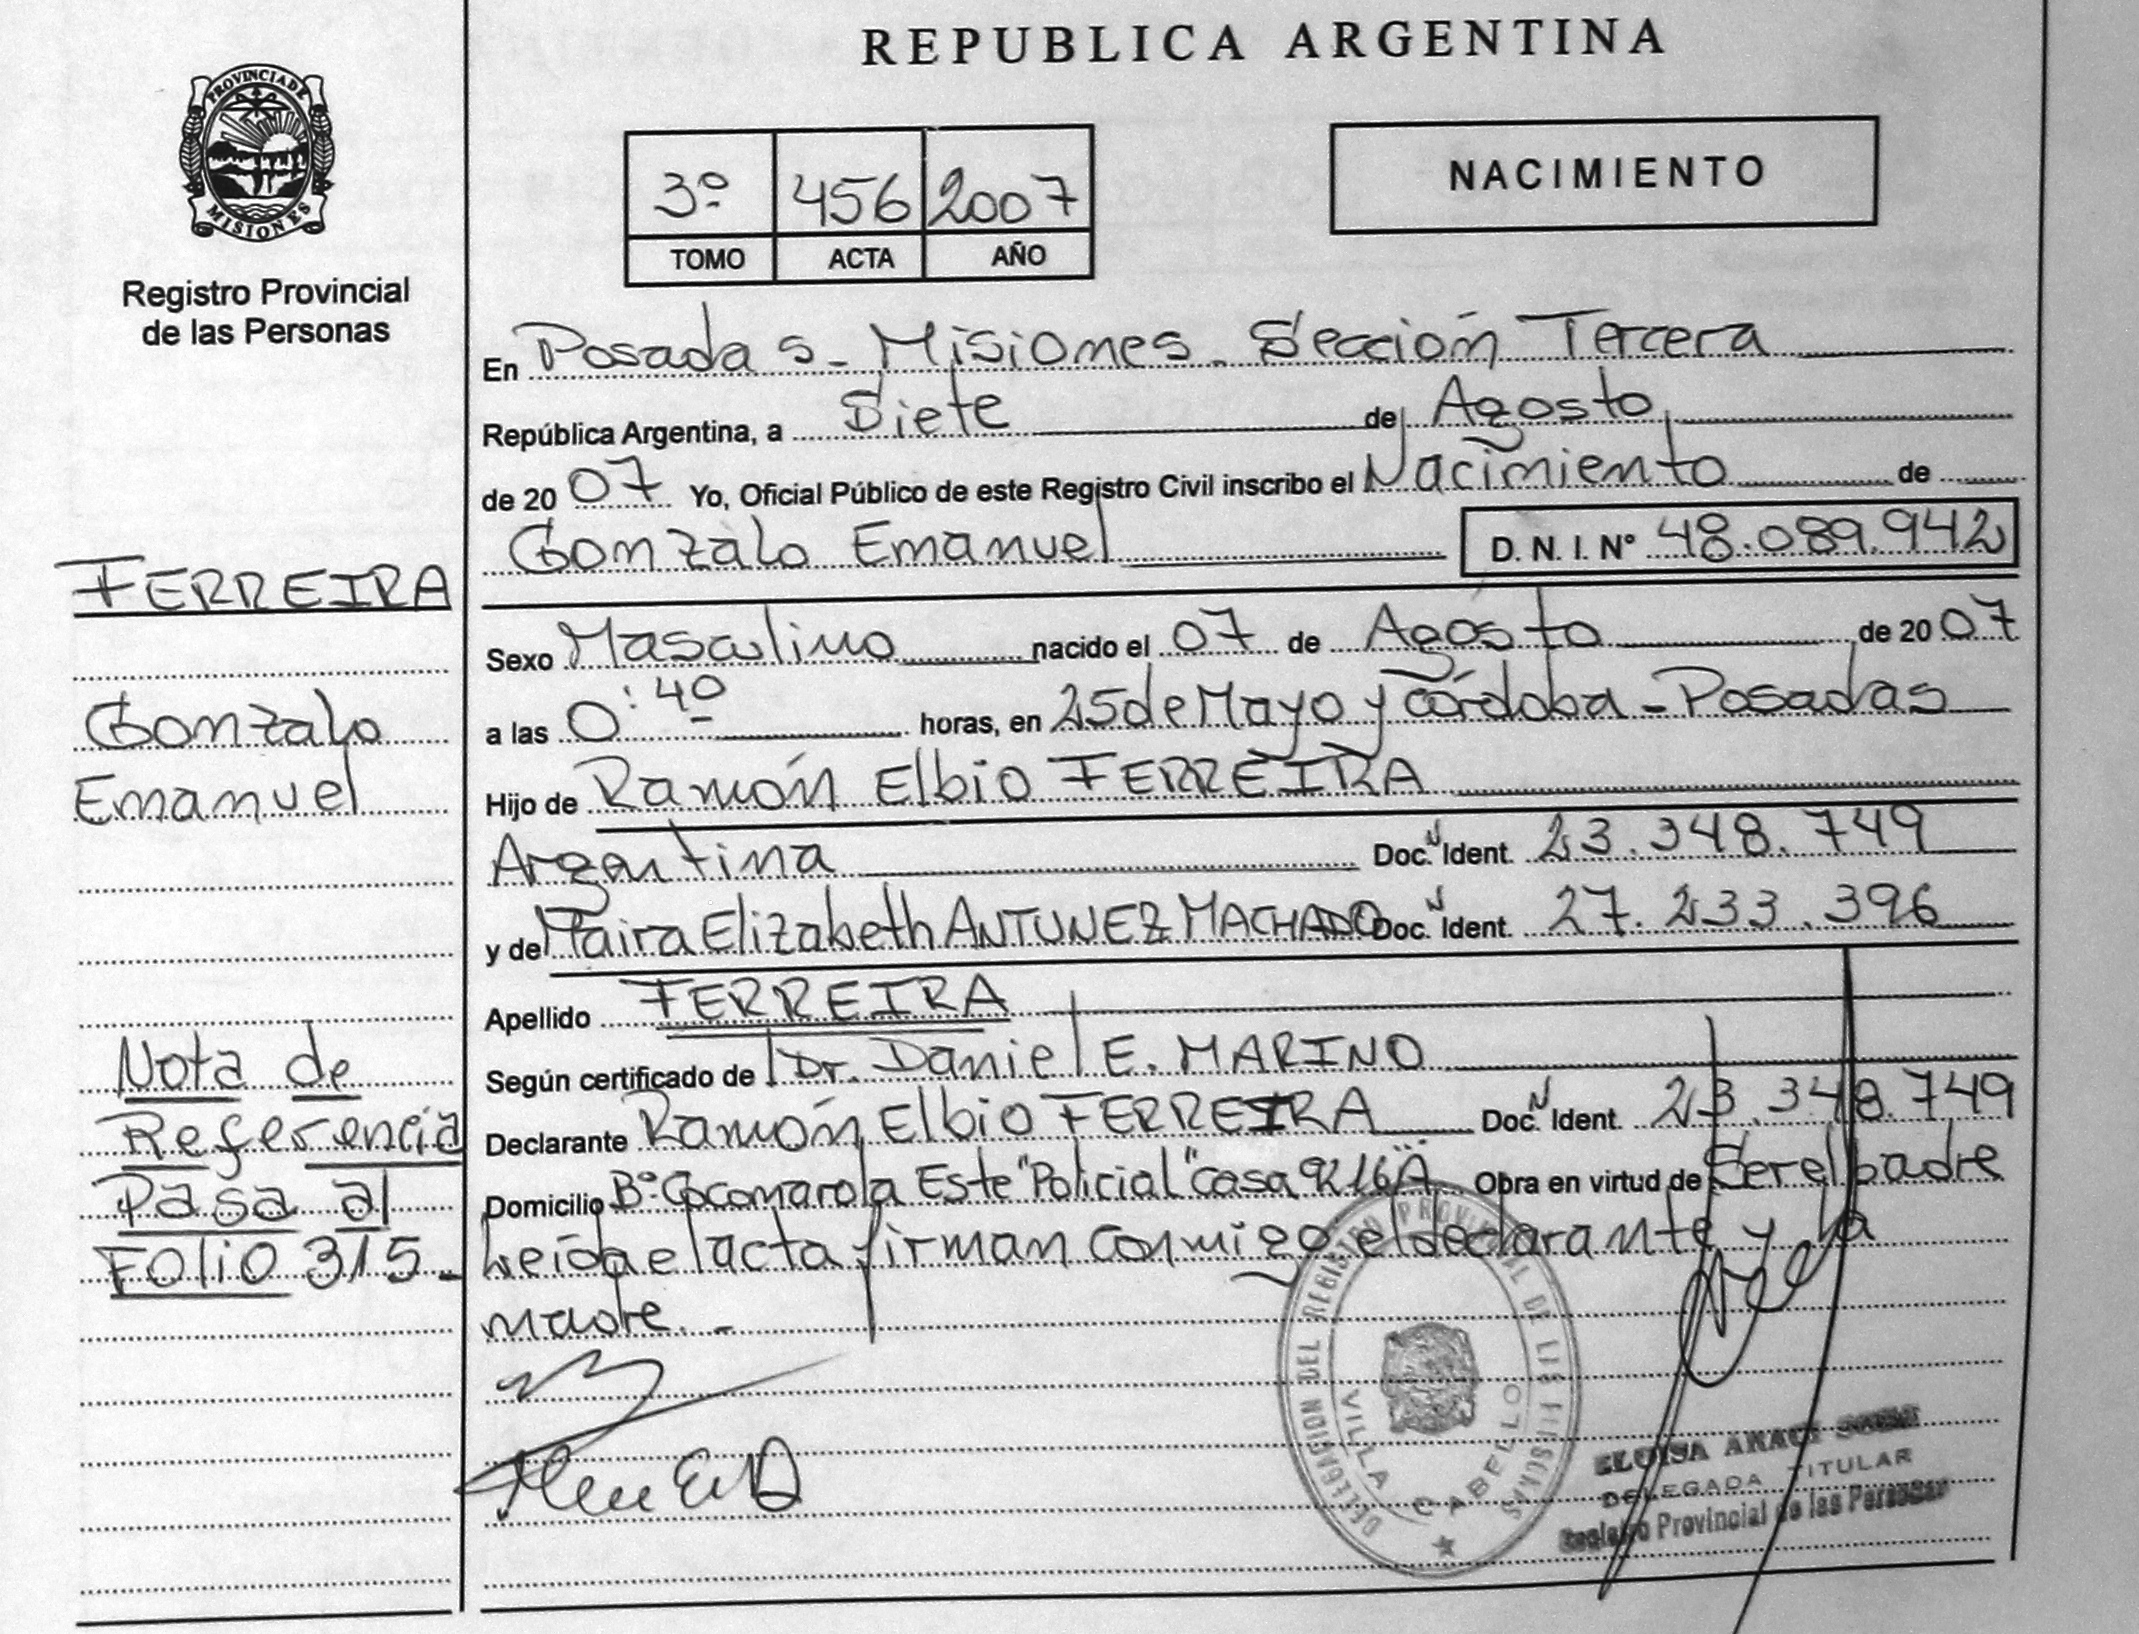 REPUBLICA ARGENTINA
PROVINCIA DE
MISIONES
Registro Provincial
de las Personas
3º 456 2007
TOMO ACTA AÑO
NACIMIENTO
En Posadas - Misiones - Sección Tercera
República Argentina, a Siete de Agosto
de 20 07 Yo, Oficial Público de este Registro Civil inscribo el Nacimiento de
Gonzalo Emanuel D. N. I. Nº 48.089.942
Sexo Masculino nacido el 07 de Agosto de 20 07
a las 0:40 horas, en 25 de Mayo y Córdoba - Posadas
Hijo de Ramón Elbio FERREIRA
Argentina Doc. N Ident. 23.348.749
y de Maira Elizabeth ANTUNEZ MACHADO Doc. N Ident. 27.233.396
Apellido FERREIRA
Según certificado de Dr. Daniel E. MARINO
Declarante Ramón Elbio FERREIRA Doc. N Ident. 23.348.749
Domicilio Bº Cocomarola Este "Policial" Casa Obra en virtud de Ser el padre
Leída el acta firman conmigo el declarante y la
madre. -
FERREIRA
Gonzalo
Emanuel
Nota de
Referencia
Pasa al
FOLIO 315 -
DELEGACION DEL REGISTRO PROVINCIAL DE LAS PERSONAS
VILLA CABELLO
ELOISA
DELEGADA TITULAR
Registro Provincial de las Personas